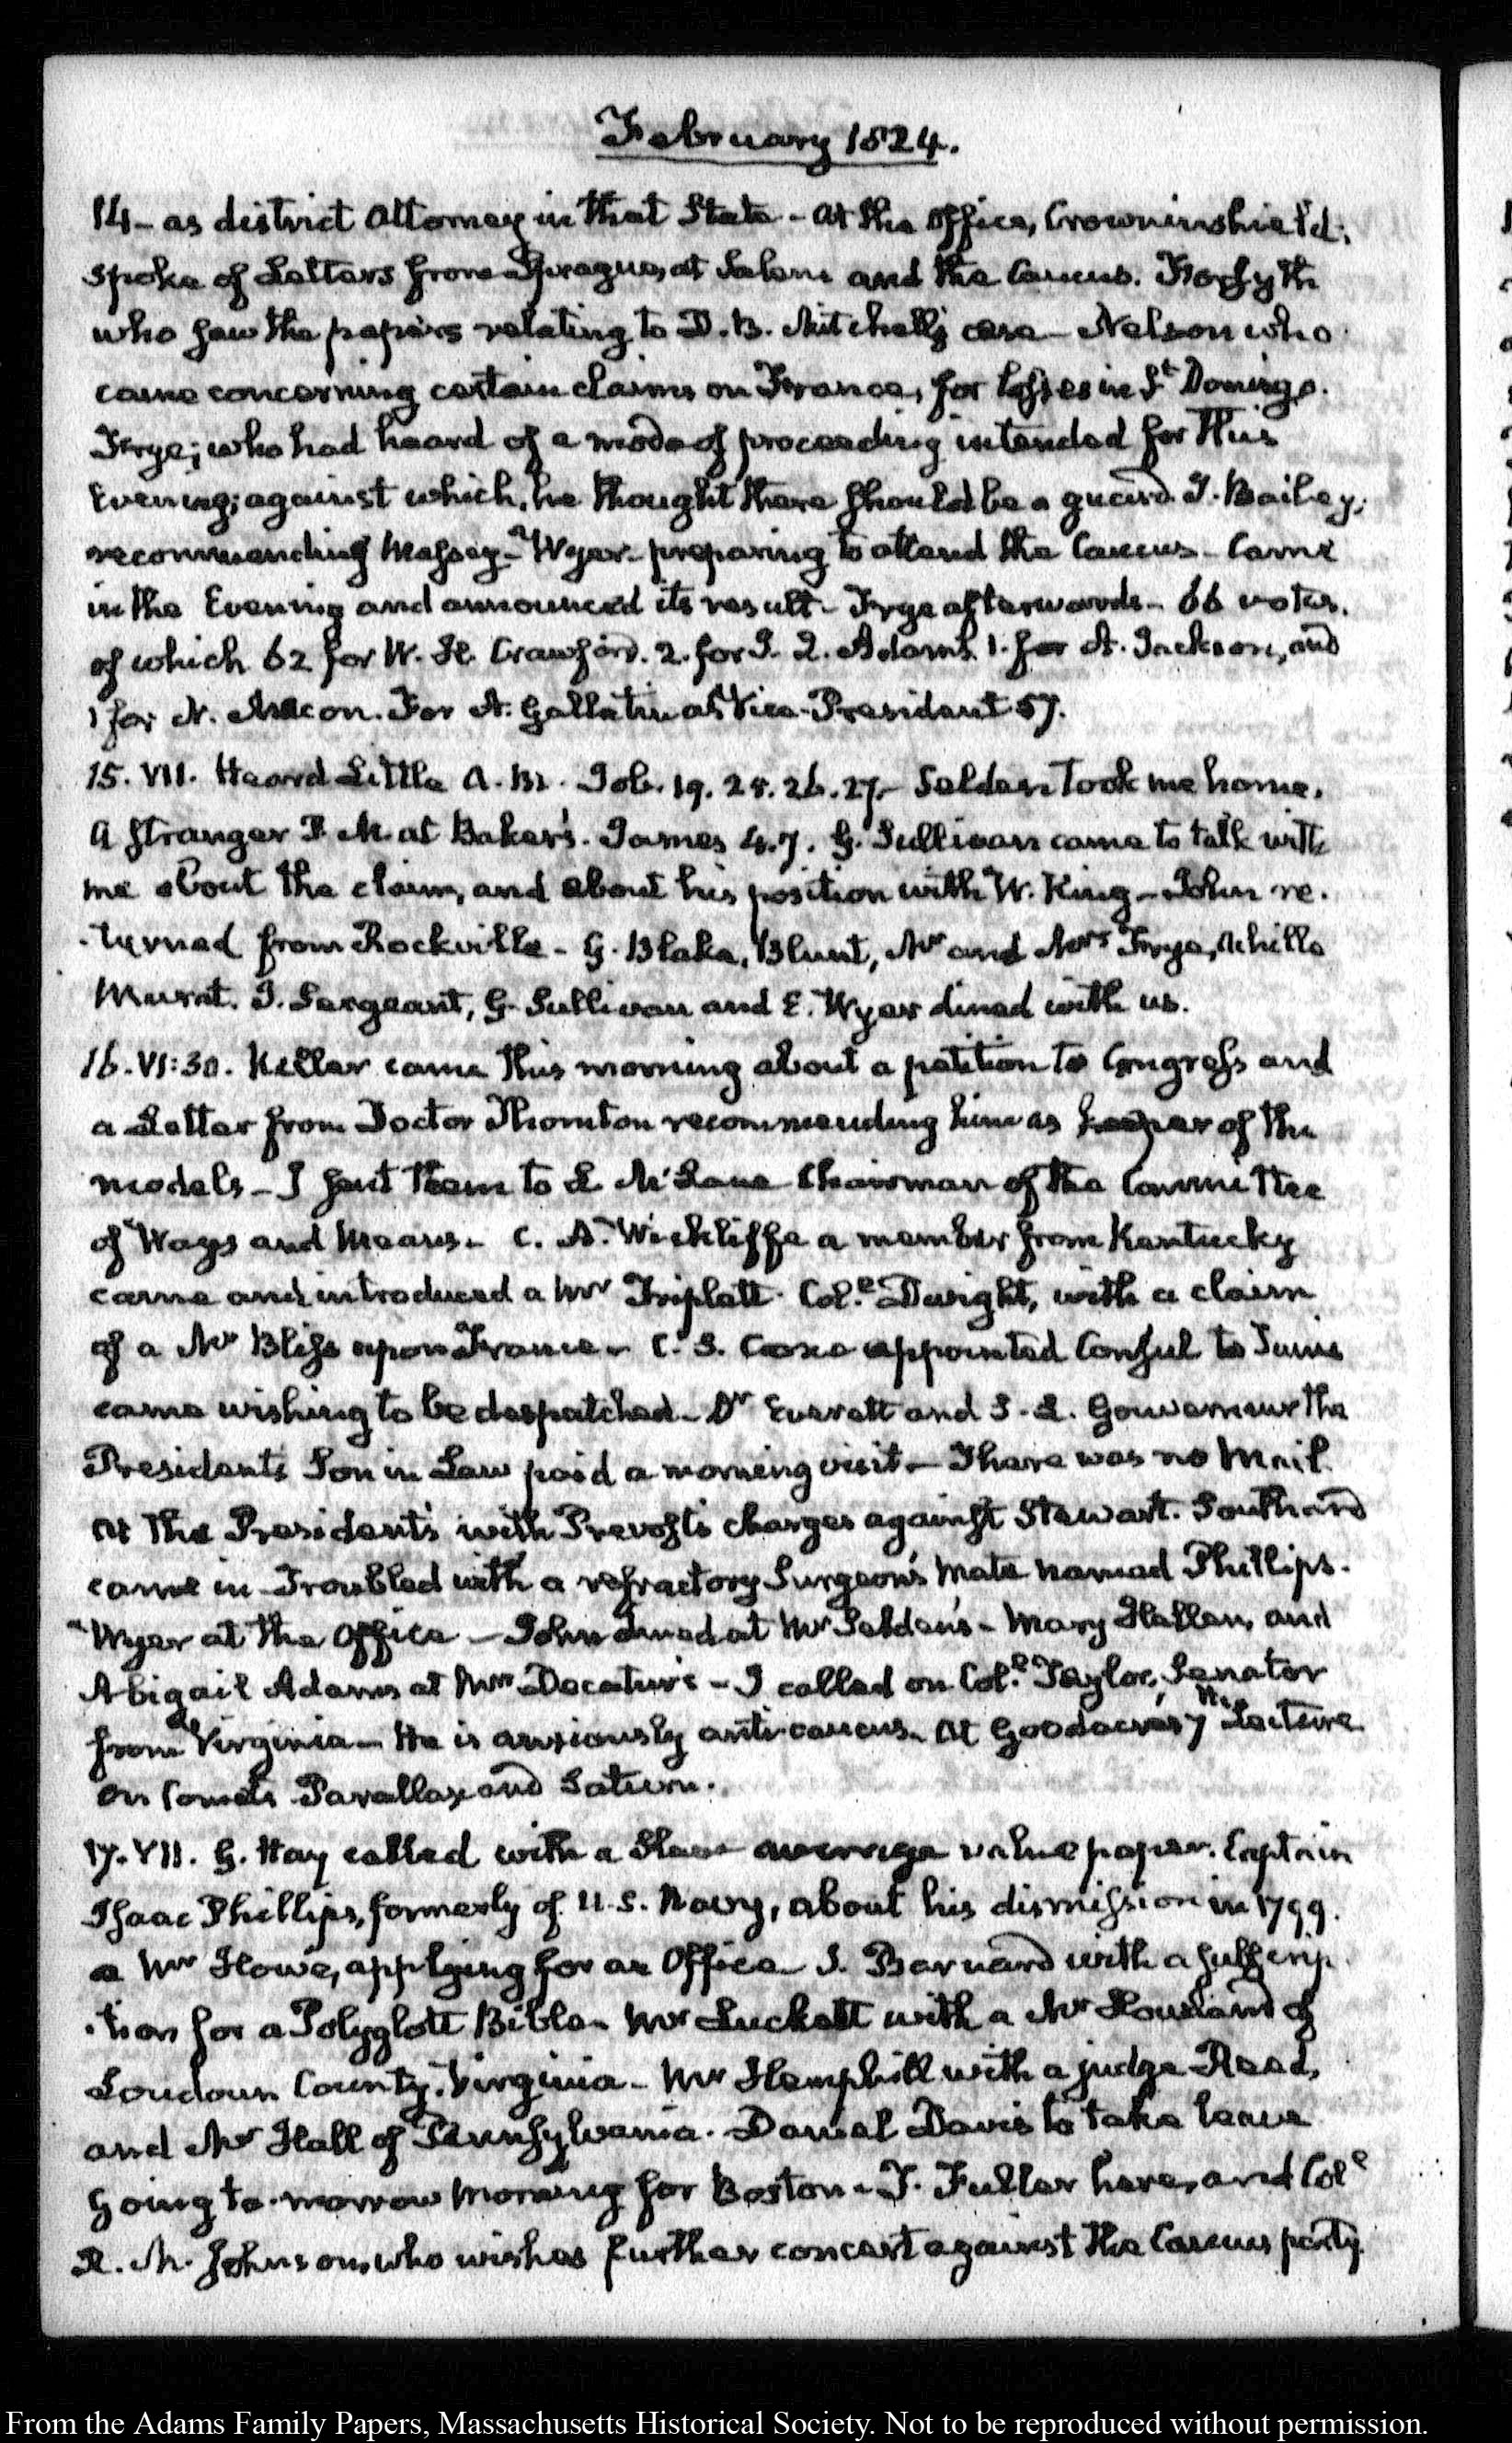 February 1824.
14 - as district Attorney in that State - At the Office, Crowninshield,
spoke of Letters from Sprague, at Salem and the Caucus. Forsyth
who saw the papers relating to D. B. Mitchell's case - Nelson who
came concerning certain claims on France, for losses in St Domingo.
Frye; who had heard of a mode of proceeding intended for this
Evening; against which, he thought there should be a guard. J. Bailey,
recommending Massey - Wyer - preparing to attend the Caucus - Came
in the Evening and announced its result - Frye afterwards - 66 votes.
of which 62 for W. H. Crawford. 2. for J. Q. Adams. 1. for A. Jackson, and
1 for N. Macon. For A. Gallatin as Vice-President 57.
15. VII. Heard Little A. M. Job. 19. 25. 26. 27. - Selden took me home.
A stranger P. M. at Baker's. James 4. 7. G. Sullivan came to talk with
me about the claim, and about his position with W. King - John re-
-turned from Rockville - G. Blake, Blunt, Mr and Mrs Frye, Achille
Murat. J. Sergeant, G. Sullivan and E. Wyer dined with us.
16. VI:30. Keller came this morning about a petition to Congress and
a Letter from Doctor Thornton recommending him as keeper of the
models - I sent them to L. McLane Chairman of the Committee
of Ways and Means - C. A. Wickliffe a member from Kentucky
came and introduced a Mr Triplett. Col.e Dwight, with a claim
of a Mr Bliss upon France - C. S. Coxe appointed Consul to Tunis
came wishing to be despatched - Dr Everett and S. L. Gouverneur the
Presidents Son in Law paid a morning visit - There was no Mail.
At the President's with Prevost's charges against Stewart. Southard
came in - Troubled with a refractory Surgeon's Mate named Phillips.
Wyer at the Office - John dined at Mr Selden's - Mary Hellen, and
Abigail Adams at Mrs Decatur's - I called on Col.e Taylor, Senator
from Virginia - He is anxiously anti-caucus - At Goodacre's 7th Lecture
on Comets Parallax and Saturn.
17. VII. G. Hay called with a Slave average value paper. Captain
Isaac Phillips, formerly of U.S. Navy, about his dismission in 1799.
a Mr Howe, applying for an Office - I. Barnard with a subscrip-
-tion for a Polyglott Bible - Mr Luckett with a Mr of
Loudoun County, Virginia - Mr Hemphill with a judge Read,
and Mr Hall of Pennsylvania. Daniel Davis to take leave
going to-morrow morning for Boston - T. Fuller here, and Col.e
R. M. Johnson, who wishes further concert against the Caucus party
From the Adams Family Papers, Massachusetts Historical Society. Not to be reproduced without permission.